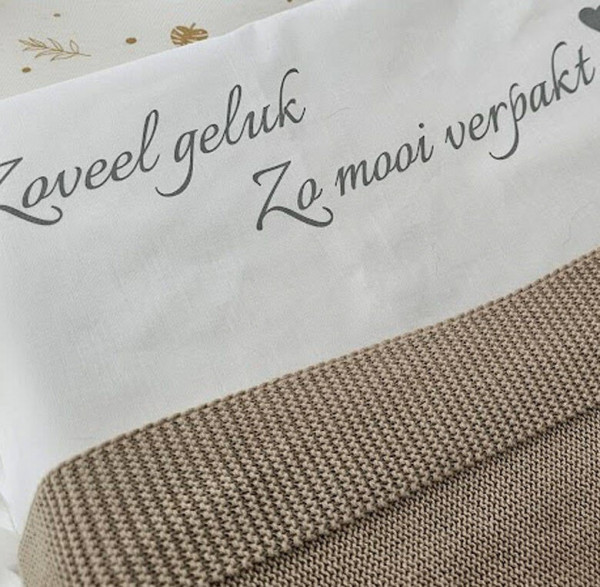 Zoveel geluk
Zo mooi verpakt